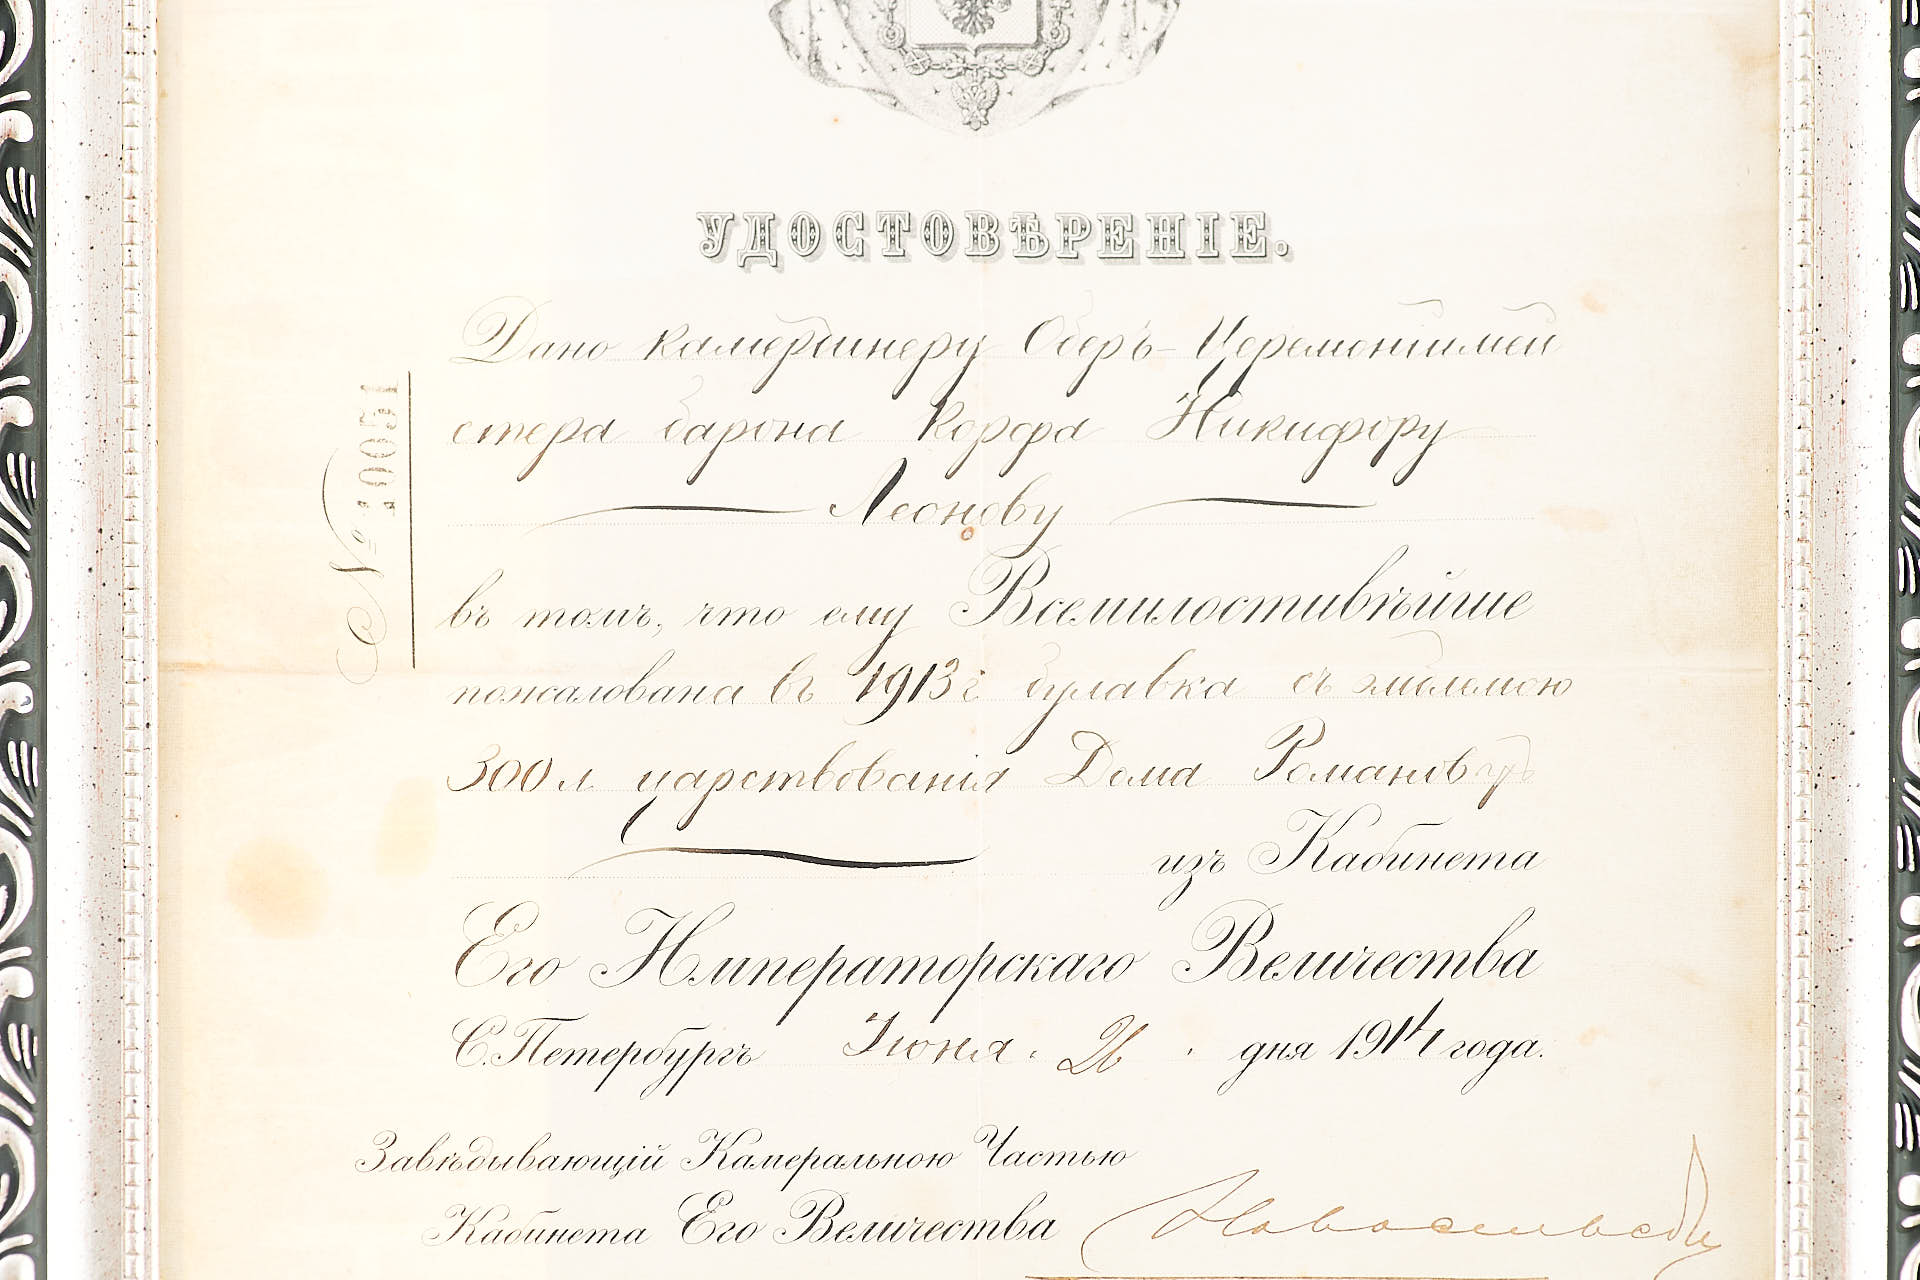 УДОСТОВѢРЕНІЕ.
Дано камердинеру Оберъ-Церемонимей
стера барона Корфа Никифору
Леонову
въ томъ, что ему Всемилостивѣйше
пожалована въ 1913 г булавка съ эмблемою
300 л царствованія Дома Романовыхъ
изъ Кабинета
Его Императорскаго Величества
С.Петербургъ Іюня 26 дня 1914 года.
Завѣдывающій Камеральною Частью
Кабинета Его Величества